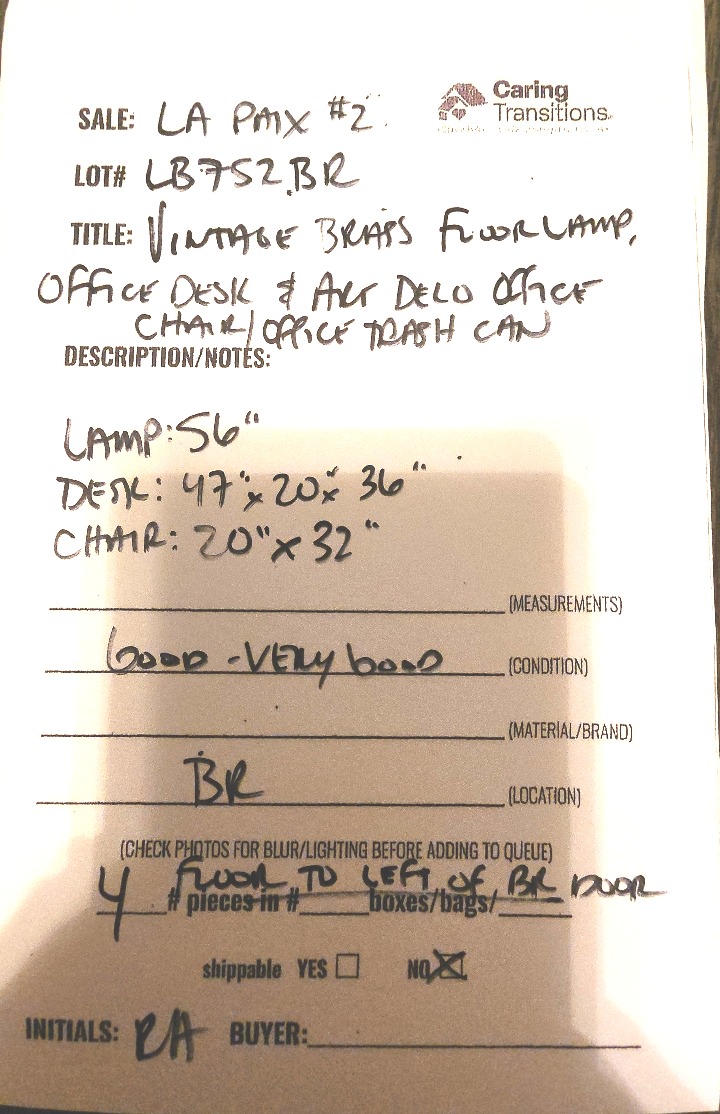 Caring
Transitions
SALE: LA PMX #2
LOT# LB752.BR
TITLE: VINTAGE BRASS FLOOR LAMP,
OFFICE DESK & ART DECO OFFICE
CHAIR/OFFICE TRASH CAN
DESCRIPTION/NOTES:
LAMP: 56"
DESK: 47" x 20" x 36"
CHAIR: 20" x 32"
(MEASUREMENTS)
GOOD - VERY GOOD (CONDITION)
(MATERIAL/BRAND)
BR (LOCATION)
(CHECK PHOTOS FOR BLUR/LIGHTING BEFORE ADDING TO QUEUE)
FLOOR TO LEFT OF BR DOOR
4 # pieces in # boxes/bags/
shippable YES NO
INITIALS: RA BUYER: